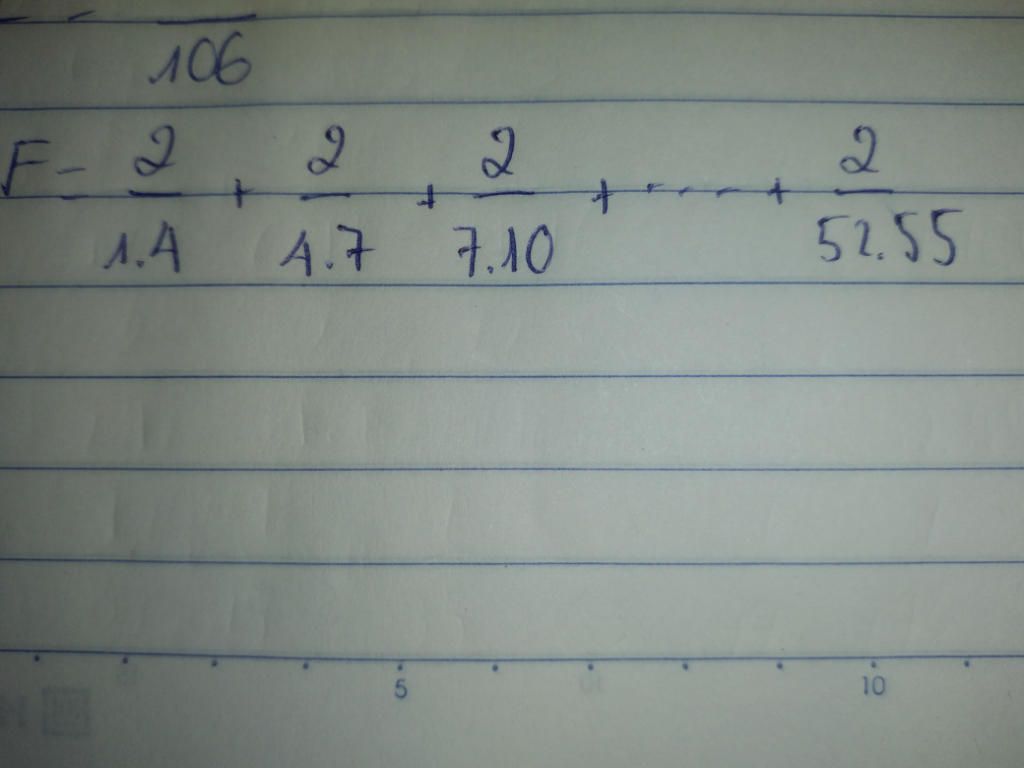 106
F = 2/1.4 + 2/4.7 + 2/7.10 + .... + 2/52.55
5 10